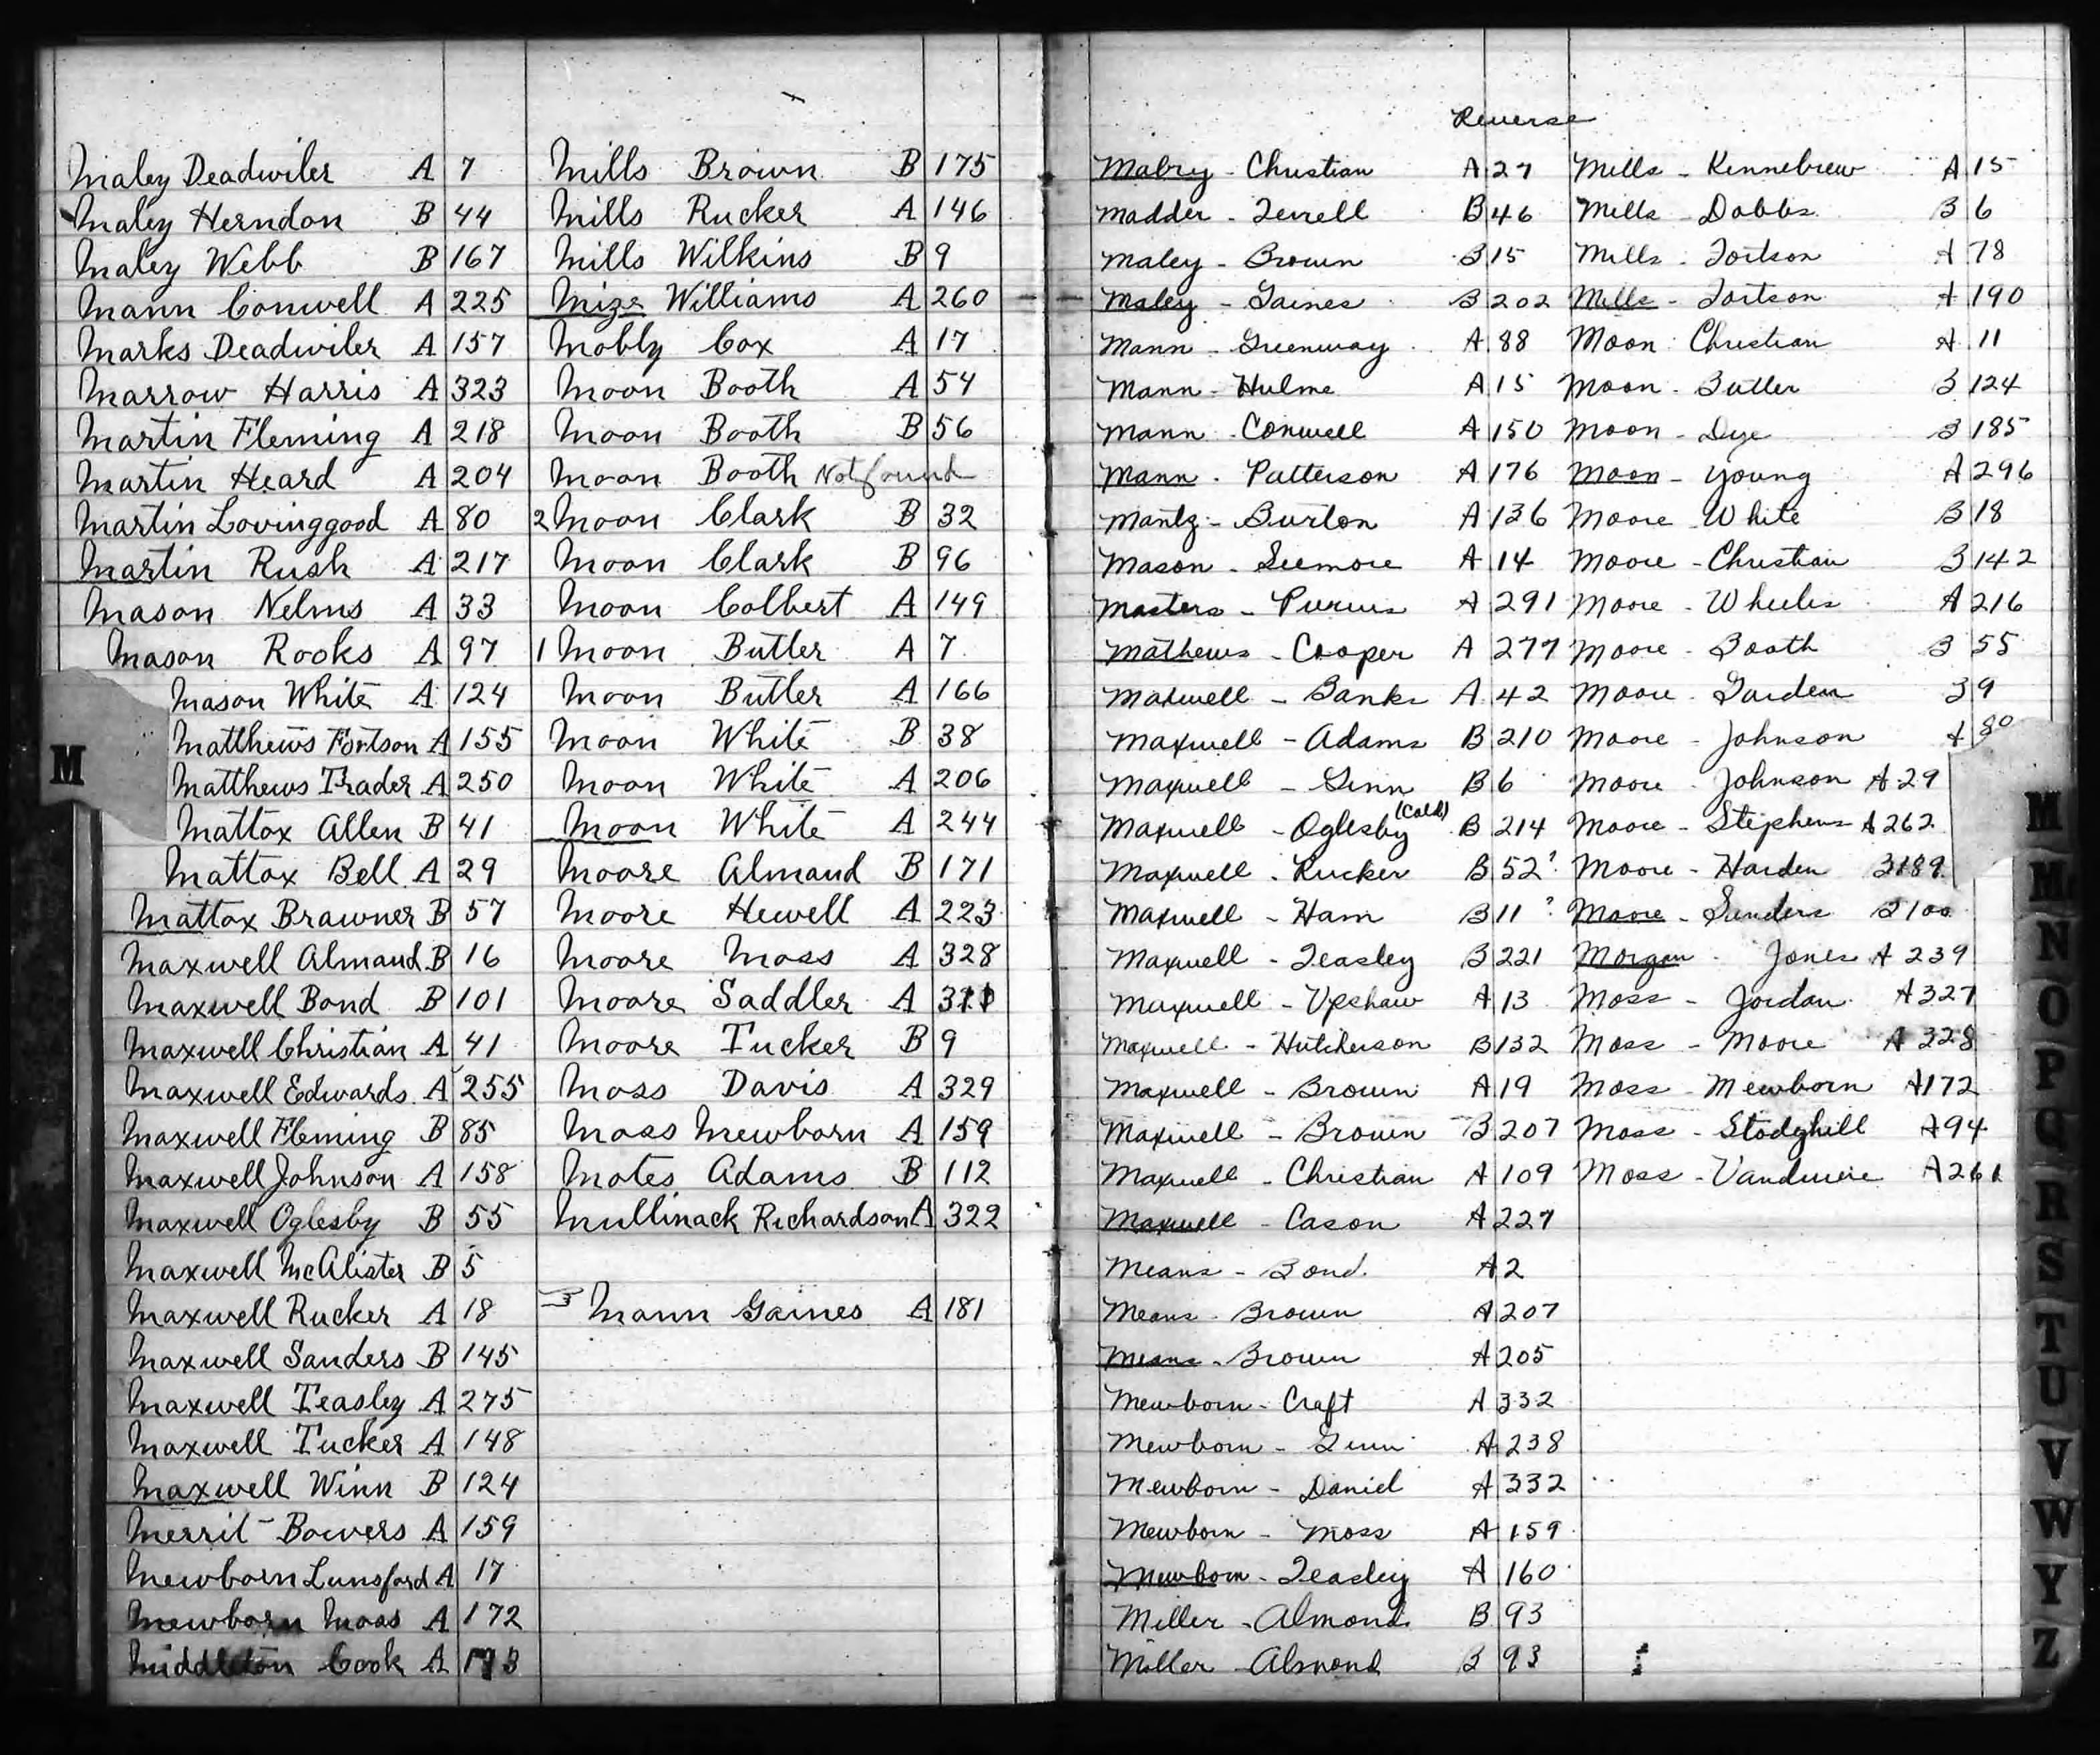 Maley Deadwiler A 7
Maley Herndon B 44
Maley Webb B 167
Mann Conwell A 225
Marks Deadwiler A 157
Marrow Harris A 323
Martin Fleming A 218
Martin Heard A 204
Martin Lovinggood A 80
Martin Rush A 217
Mason Nelms A 33
Mason Rooks A 97
Mason White A 124
Matthews Fortson A 155
Matthews Trader A 250
Mattox Allen B 41
Mattox Bell A 29
Mattox Brawner B 57
Maxwell Almand B 16
Maxwell Bond B 101
Maxwell Christian A 41
Maxwell Edwards A 255
Maxwell Fleming B 85
Maxwell Johnson A 158
Maxwell Oglesby B 55
Maxwell McAlister B 5
Maxwell Rucker A 18
Maxwell Sanders B 145
Maxwell Teasley A 275
Maxwell Tucker A 148
Maxwell Winn B 124
Merrit - Bowers A 159
Mewborn Lunsford A 17
Mewborn Moss A 172
Middleton Cook A
M
Mills Brown B 175
Mills Rucker A 146
Mills Wilkins B 9
Mize Williams A 260
Mobly Cox A 17
Moon Booth A 54
Moon Booth B 56
Moon Booth Not found
2 Moon Clark B 32
Moon Clark B 96
Moon Colbert A 149
1 Moon Butler A 7
Moon Butler A 166
Moon White B 38
Moon White A 206
Moon White A 244
Moore Almand B 171
Moore Hewell A 223
Moore Moss A 328
Moore Saddler A
Moore Tucker B 9
Moss Davis A 329
Moss Mewborn A 159
Motes Adams B 112
Mullinack Richardson A 322
Mann Gaines A 181
Reverse
Mabry - Christian A 27
Madder - Terrell B 46
Maley - Brown B 15
Maley - Gaines B 202
Mann - Greenway A 88
Mann - Hulme A 15
Mann - Conwell A 150
Mann - Patterson A 176
Mantz - Burton A 136
Mason - Seemore A 14
Masters - Purvis A 291
Mathews - Cooper A 277
Maxwell - Banks A 42
Maxwell - Adams B 210
Maxwell - Ginn B 6
Maxwell - Oglesby (Cold) B 214
Maxwell - Rucker B 52?
Maxwell - Ham B 11?
Maxwell - Teasley B 221
Maxwell - Upshaw A 13
Maxwell - Hutcherson B 132
Maxwell - Brown A 19
Maxwell - Brown B 207
Maxwell - Christian A 109
Maxwell - Cason A 227
Means - Bond A 2
Means - Brown A 207
Means - Brown A 205
Mewborn - Craft A 332
Mewborn - Ginn A 238
Mewborn - Daniel A 332
Mewborn - Moss A 159
Mewborn - Teasley A 160
Miller - Almond B 93
Miller - Almond B 93
Mills - Kennebrew A 15
Mills - Dobbs B 6
Mills - Fortson A 78
Mills - Fortson A 190
Moon - Christian A 11
Moon - Butler B 124
Moon - Dye B 185
Moon - Young A 296
Moore - White B 18
Moore - Christian B 142
Moore - Wheeler A 216
Moore - Booth B 55
Moore - Garden B 9
Moore - Johnson A 80
Moore - Johnson A 29
Moore - Stephens A 262
Moore - Harden B 189
Moore - Sanders B 100
Morgan - Jones A 239
Moss - Jordan A 327
Moss - Moore A 328
Moss - Mewborn A 172
Moss - Stodghill A 94
Moss - Vanduere A 261
M
M
N
O
P
Q
R
S
T
U
V
W
Y
Z